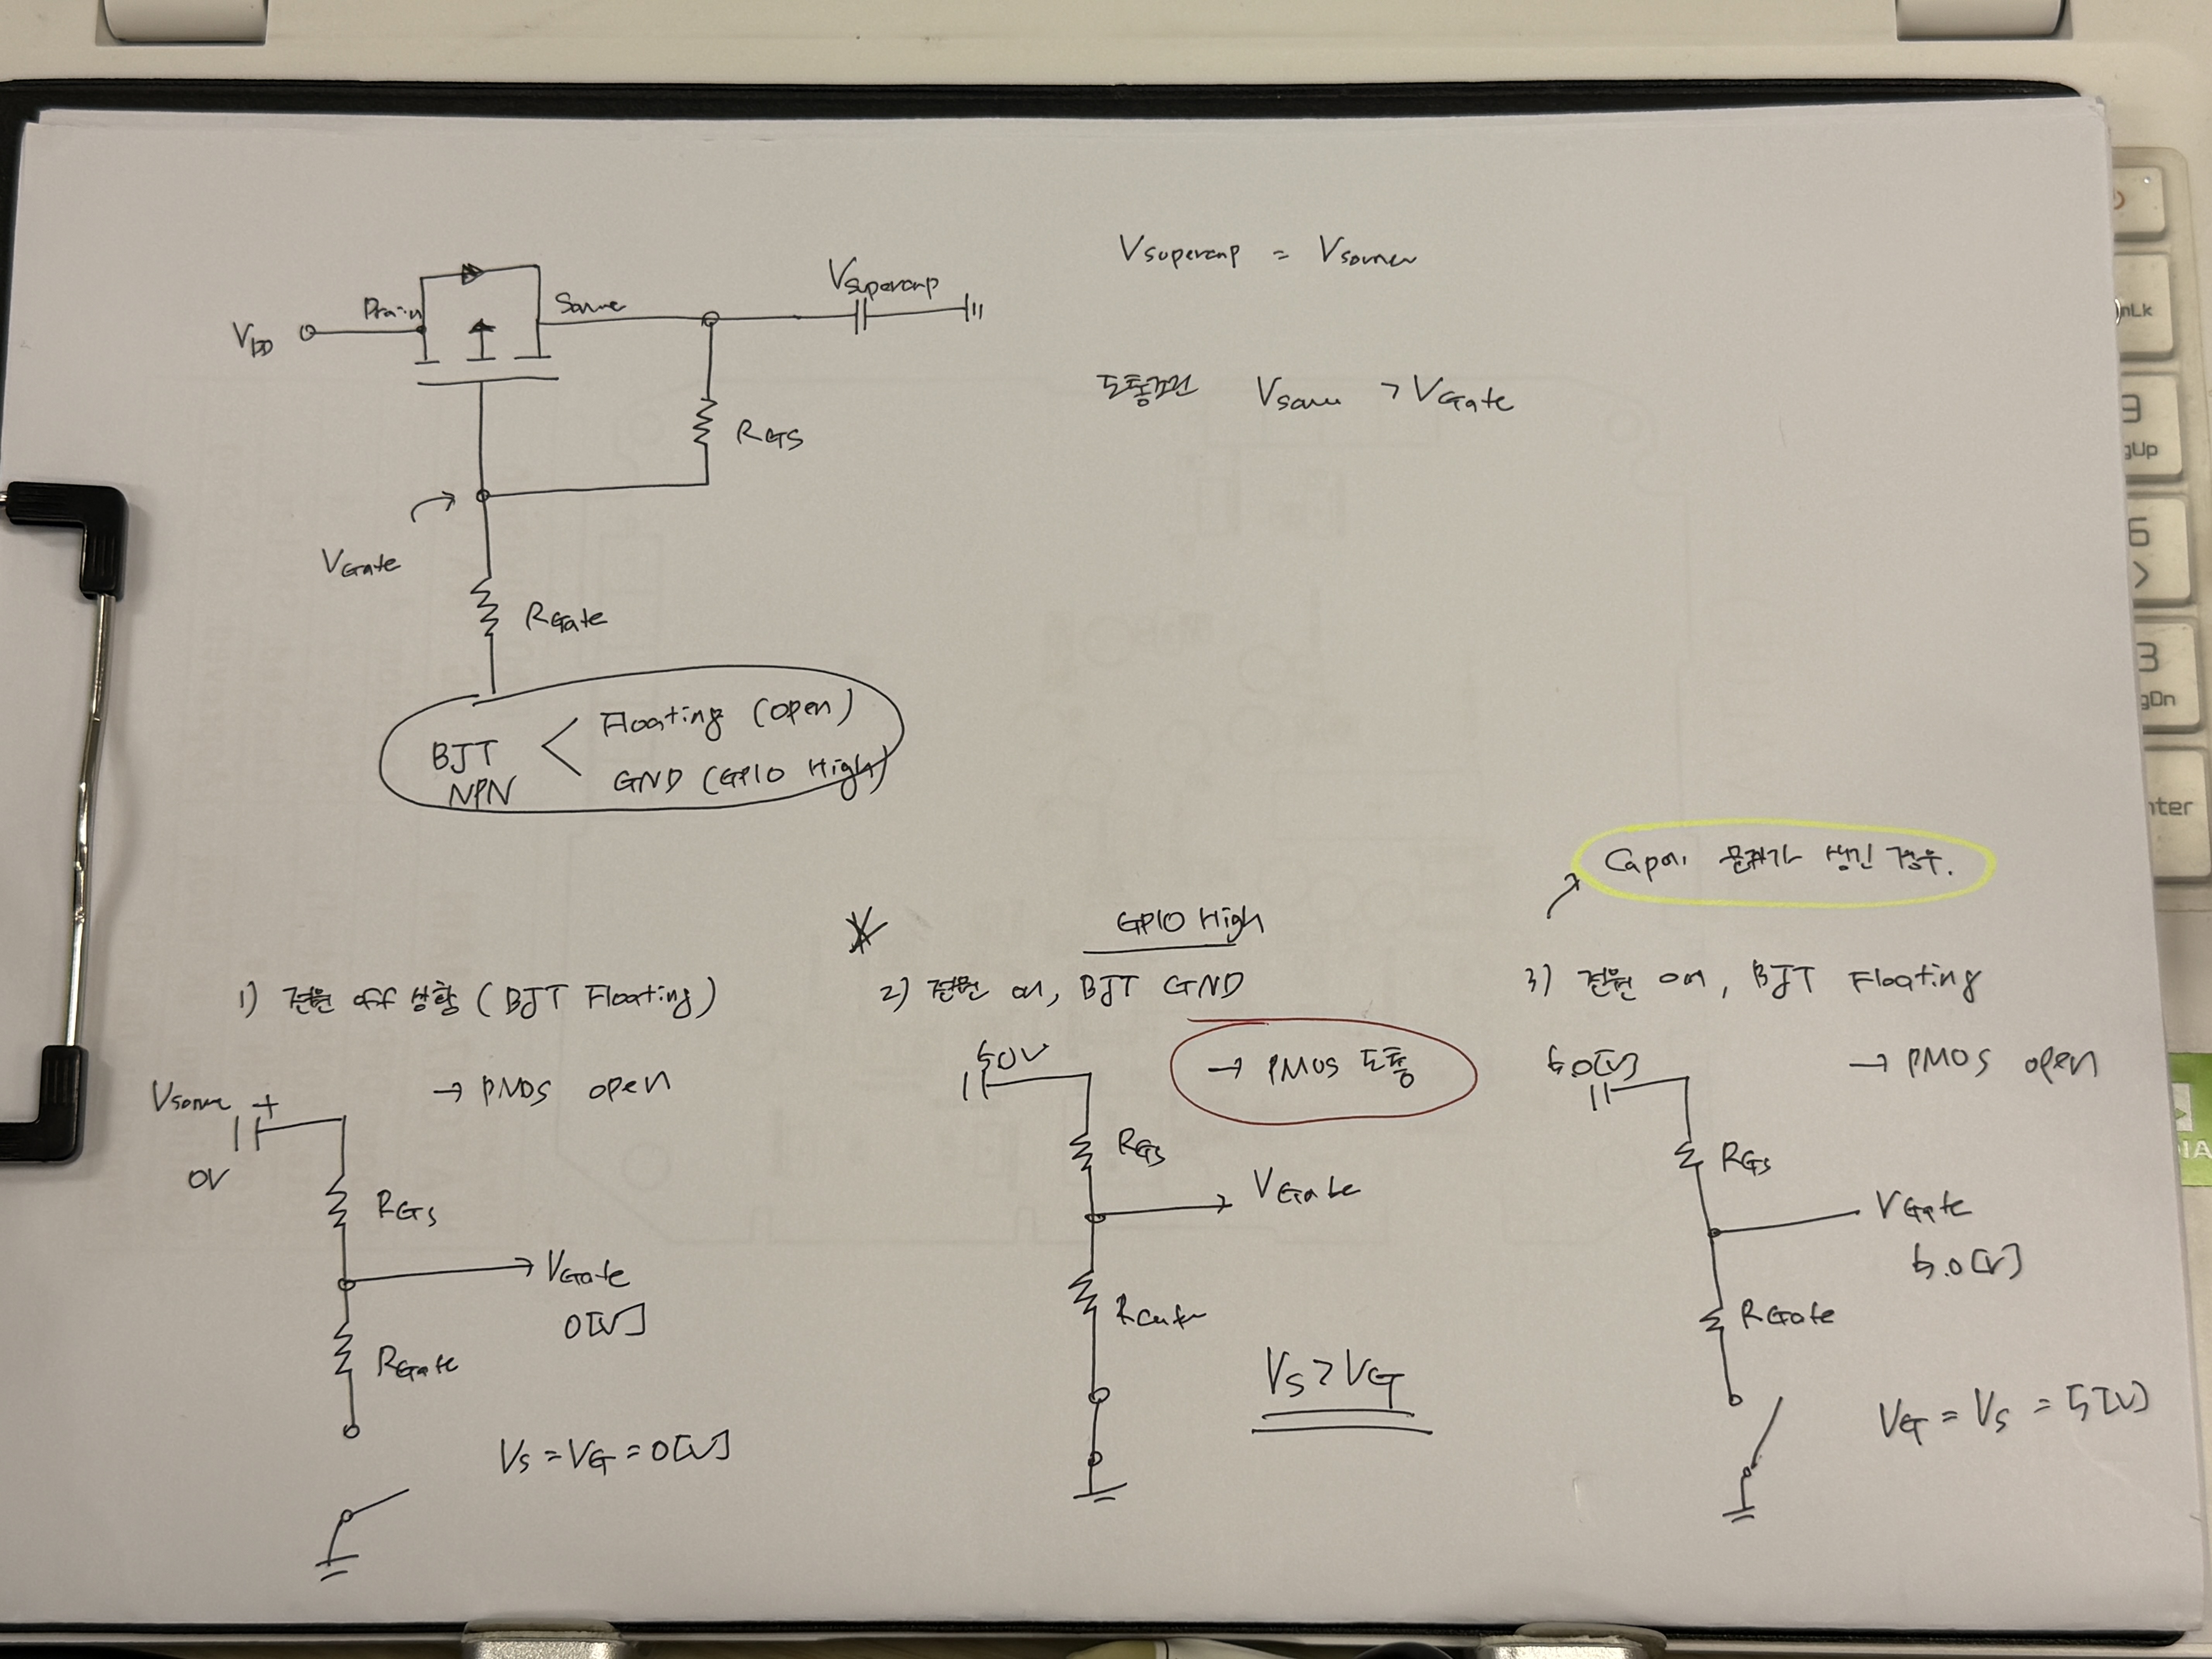 Vsupercap = Vsource
Drain
Source
Vsupercap
VDD
도통조건 Vsource > VGate
RGS
VGate
RGate
BJT
NPN
Floating (open)
GND (GPIO High)
Cap에 문제가 생긴 경우.
GPIO High
1) 전원 off 상황 (BJT Floating)
→ PMOS open
Vsource +
0V
RGS
VGate
0[V]
RGate
VS = VG = 0[V]
2) 전원 on, BJT GND
5.0V
→ PMOS 도통
RGS
VGate
VS > VG
3) 전원 on, BJT Floating
5.0[V]
→ PMOS open
RGS
VGate
5.0[V]
RGate
VG = VS = 5[V]
nLk
9
gUp
6
>
3
gDn
nter